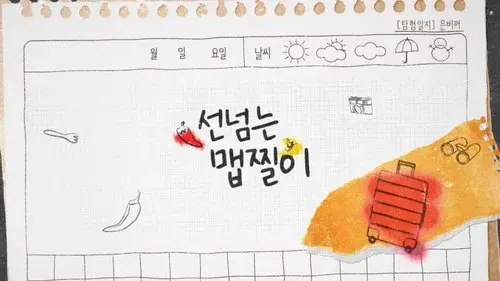 [탐험일지] 은비꺼
월 일 요일 날씨
선넘는
맵찔이